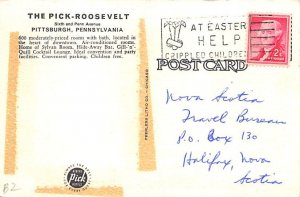 THE PICK-ROOSEVELT
Sixth and Penn Avenue
PITTSBURGH, PENNSYLVANIA
600 moderately-priced rooms with bath, located in the
heart of downtown. Air-conditioned rooms.
Home of Sylvan Room, Hide-Away Bar, Gill-'n'-
Quill Cocktail Lounge. Ideal convention and party
facilities. Convenient parking. Children free.
AT EASTER
HELP
CRIPPLED CHILDREN
2¢
POST CARD
PEERLESS LITHO CO. - CHICAGO
Nova Scotia
Travel Bureau
P.O. Box 130
Halifax, Nova
Scotia
Pick
B2